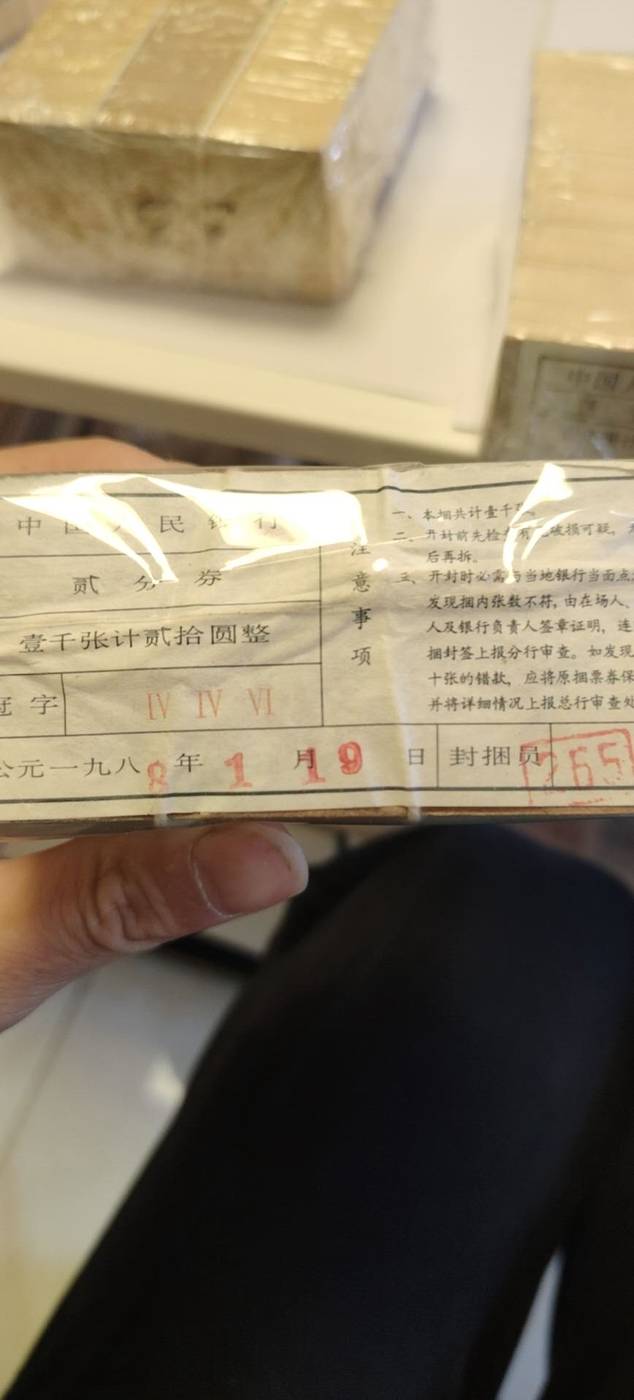 中国人民银行
贰分券
壹千张计贰拾圆整
冠字 IV IV VI
公元一九八8年1月19日 封捆员 265
注意事项
一、本捆共计壹千
二、开封前先检 破损可疑,
后再拆。
三、开封时必需与当地银行当面点
发现捆内张数不符,由在场人、
人及银行负责人签章证明,连
捆封签上报分行审查。如发现
十张的错款,应将原捆票券保
并将详细情况上报总行审查处
中国